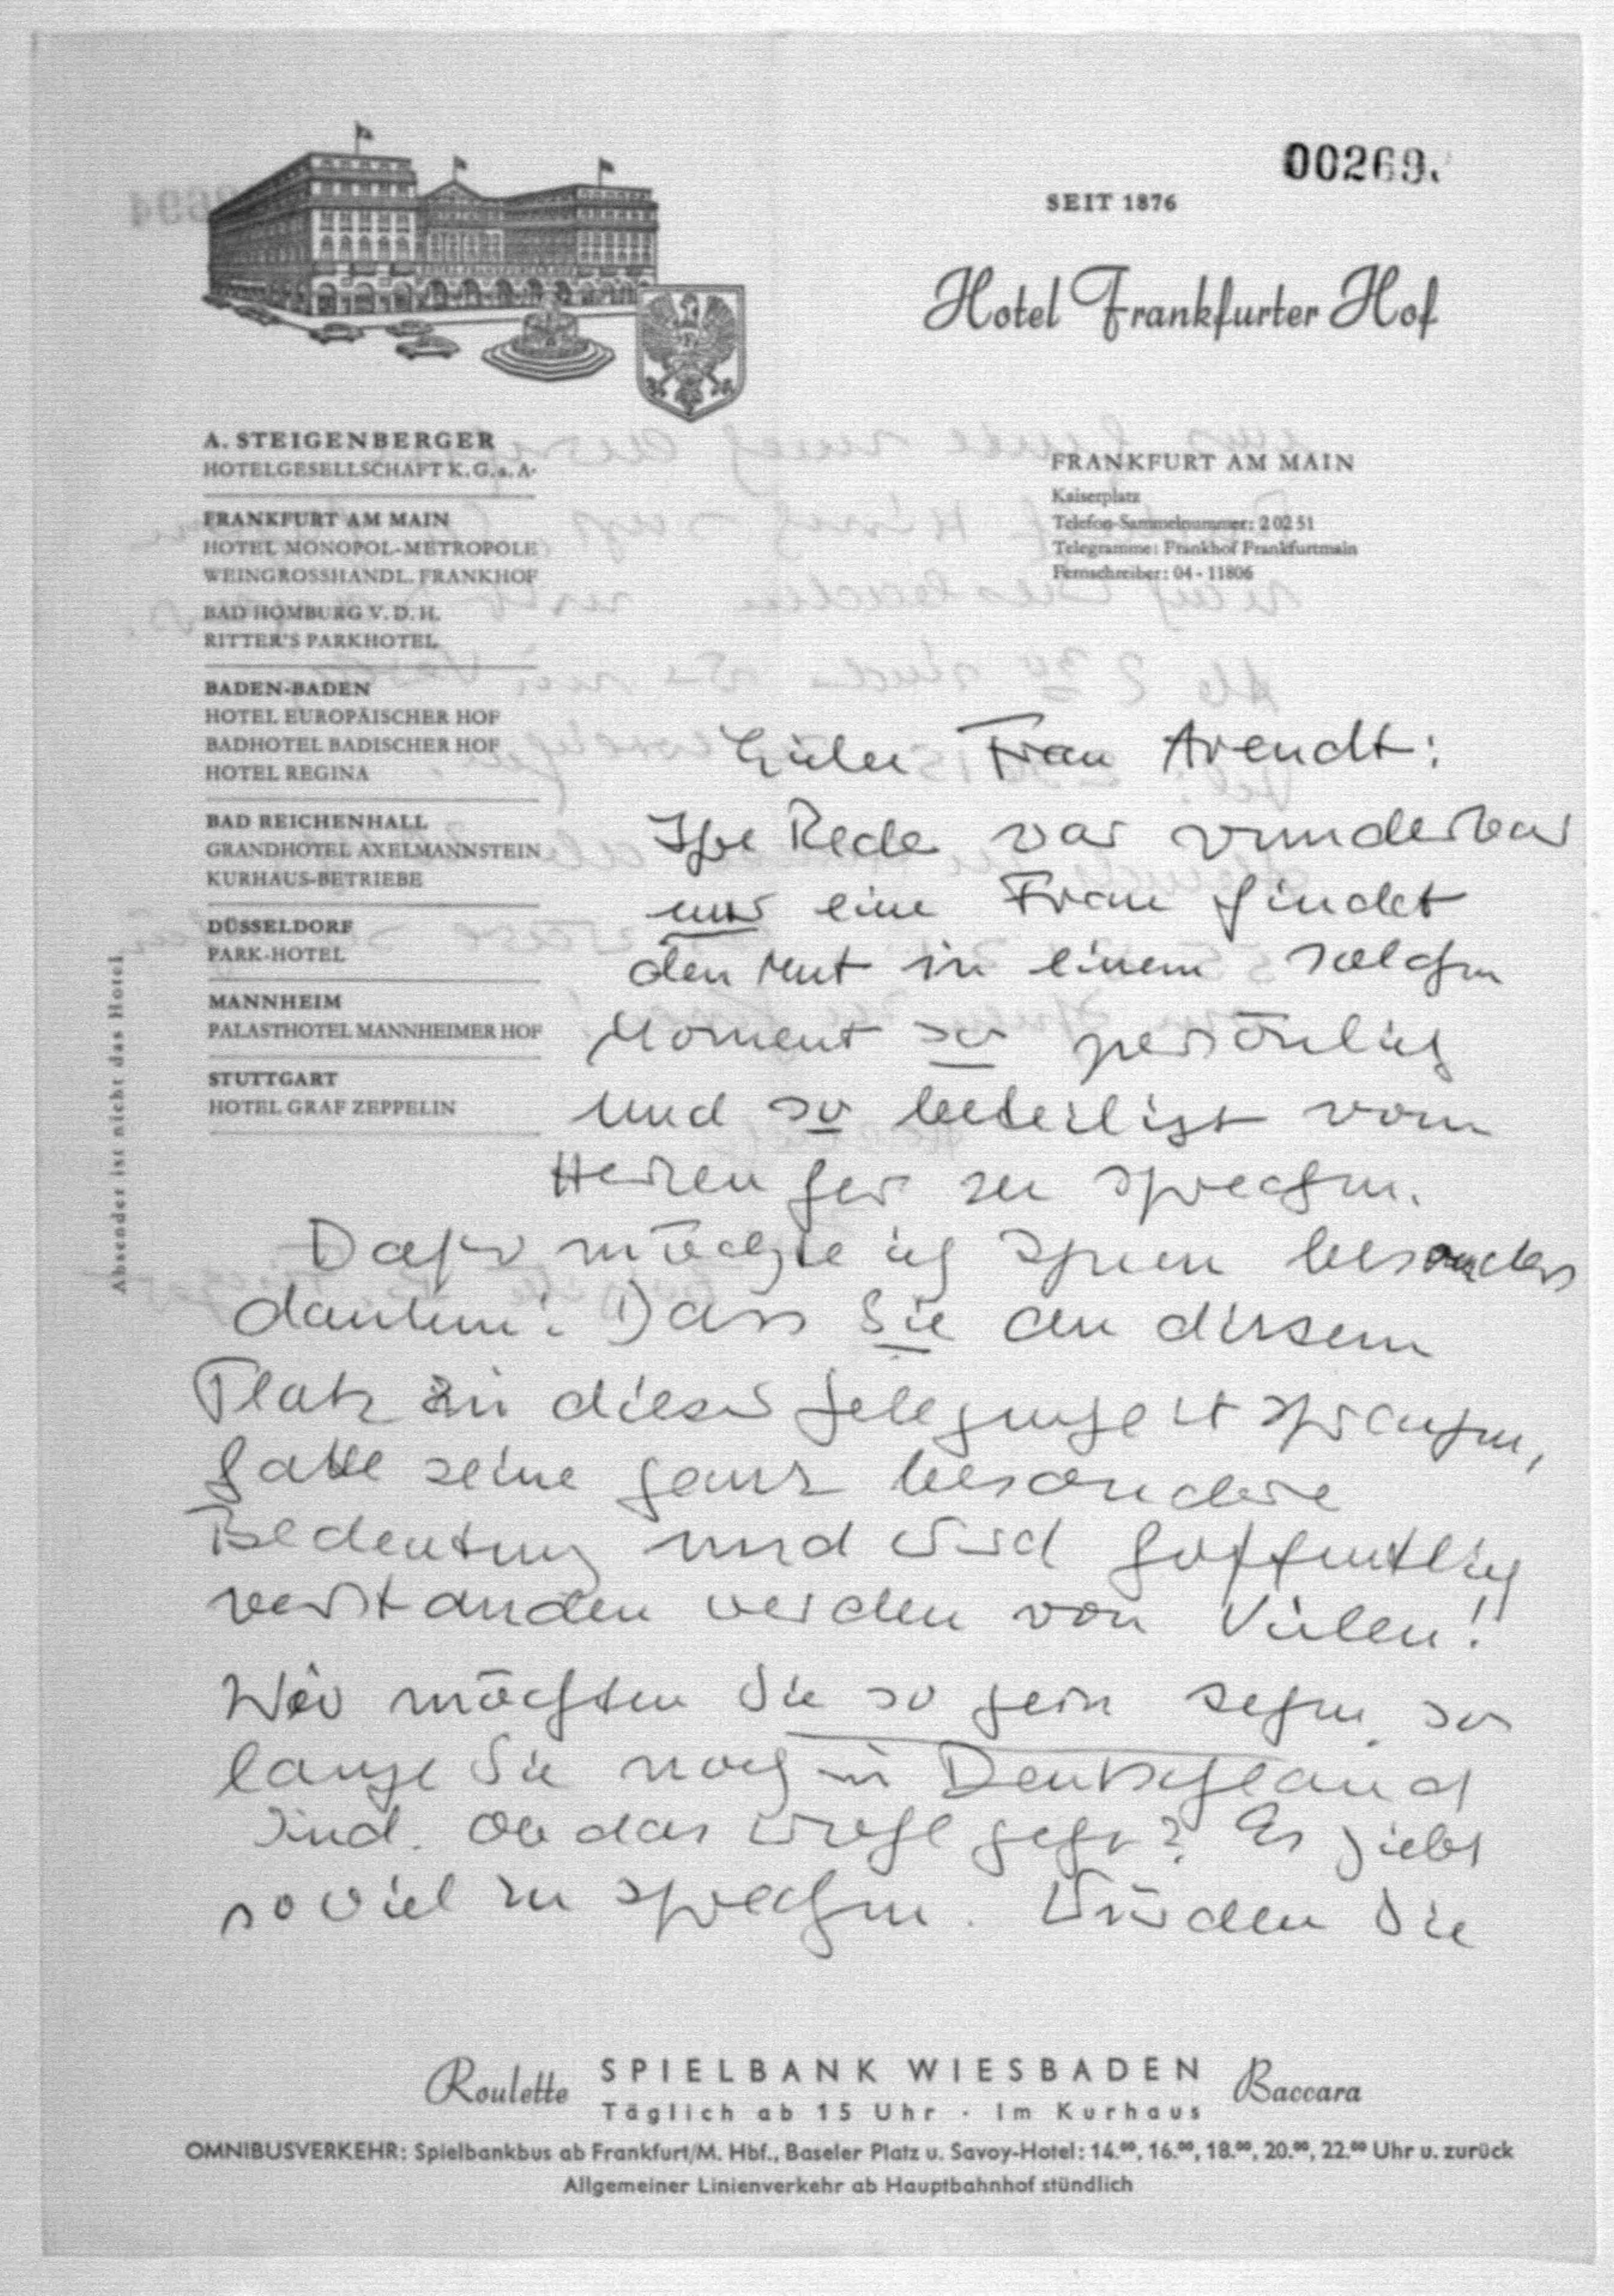 00269.
SEIT 1876
Hotel Frankfurter Hof
A. STEIGENBERGER
HOTELGESELLSCHAFT K.G.a.A.
FRANKFURT AM MAIN
HOTEL MONOPOL-METROPOLE
WEINGROSSHANDL. FRANKHOF
BAD HOMBURG V.D.H.
RITTER'S PARKHOTEL
BADEN-BADEN
HOTEL EUROPÄISCHER HOF
BADHOTEL BADISCHER HOF
HOTEL REGINA
BAD REICHENHALL
GRANDHOTEL AXELMANNSTEIN
KURHAUS-BETRIEBE
DÜSSELDORF
PARK-HOTEL
MANNHEIM
PALASTHOTEL MANNHEIMER HOF
STUTTGART
HOTEL GRAF ZEPPELIN
Absender ist nicht das Hotel
FRANKFURT AM MAIN
Kaiserplatz
Telefon-Sammelnummer: 2 02 51
Telegramme: Frankhof Frankfurtmain
Fernschreiber: 04-11806
Frau Arendt:
Ihre Rede war wunderbar
nur eine Frau findet
den Mut in einem solchen
Moment so persönlich
und so beteiligt vom
Herzen her zu sprechen.
Dafür möchte ich Ihnen besonders
danken! Dass Sie an diesem
Platz zu dieser Gelegenheit sprachen,
hatte seine ganz besondere
Bedeutung und wird hoffentlich
verstanden werden von Vielen!
Wir möchten Sie so gern sehen so
lange Sie noch in Deutschland
sind. Ob das wohl geht? Es giebt
so viel zu sprechen. Würden Sie
Roulette SPIELBANK WIESBADEN Baccara
Täglich ab 15 Uhr · Im Kurhaus
OMNIBUSVERKEHR: Spielbankbus ab Frankfurt/M. Hbf., Baseler Platz u. Savoy-Hotel: 14.00, 16.00, 18.00, 20.00, 22.00 Uhr u. zurück
Allgemeiner Linienverkehr ab Hauptbahnhof stündlich